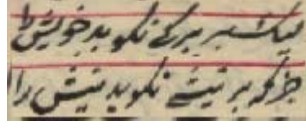 لیک شیر بر کے نکوبد خویش را
جز کہ بر نیشے نکوبد نیش را